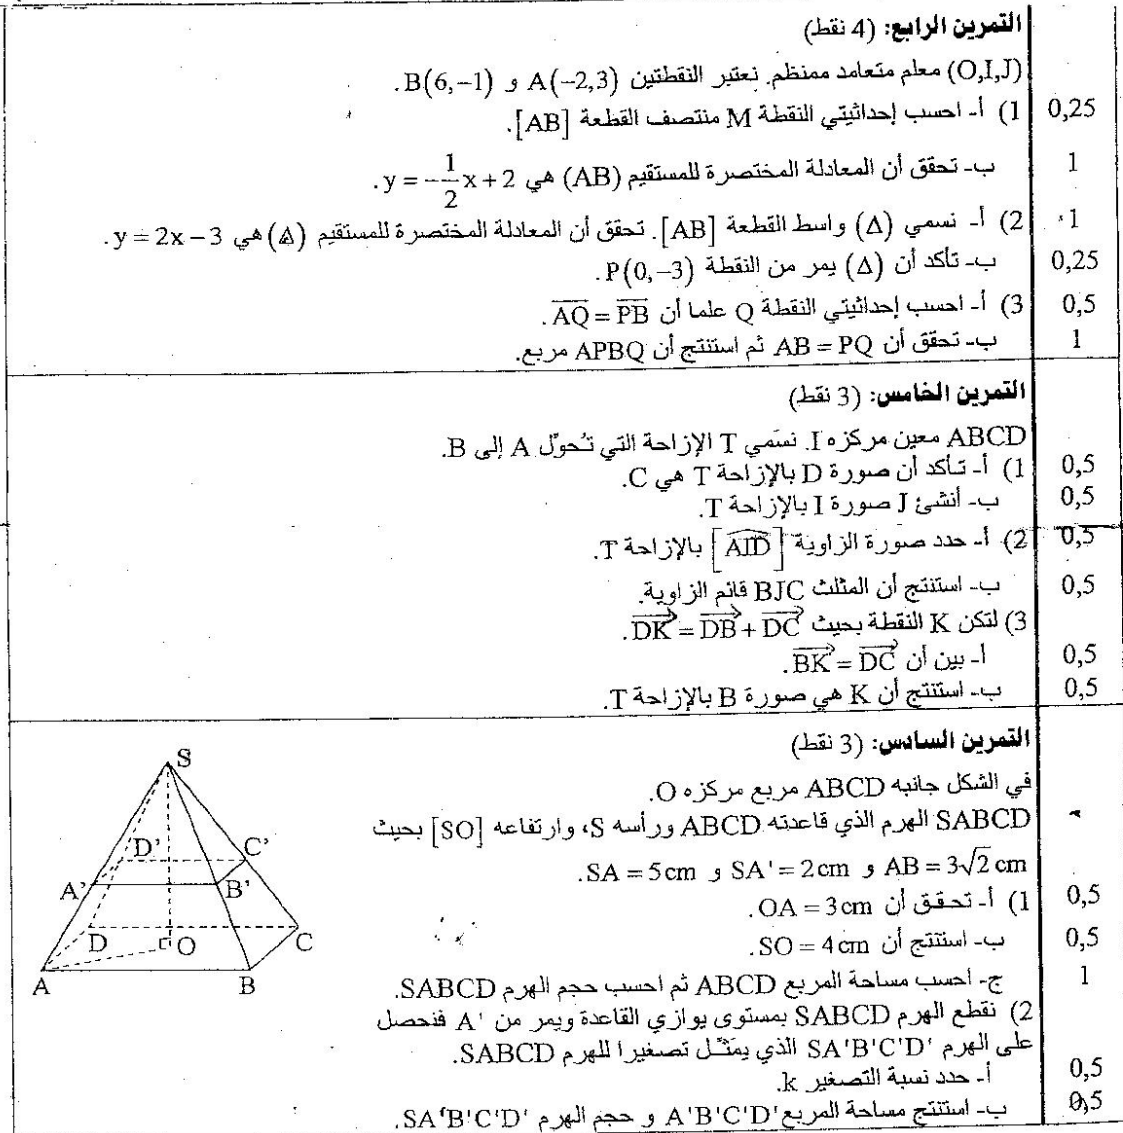 التمرين الرابع: (4 نقط)
(O,I,J) معلم متعامد ممنظم. نعتبر النقطتين A(−2,3) و B(6,−1).
0,25 1) أ- احسب إحداثيتي النقطة M منتصف القطعة [AB].
1 ب- تحقق أن المعادلة المختصرة للمستقيم (AB) هي y = −1/2 x + 2.
1 2) أ- نسمي (Δ) واسط القطعة [AB]. تحقق أن المعادلة المختصرة للمستقيم (Δ) هي y = 2x − 3.
0,25 ب- تأكد أن (Δ) يمر من النقطة P(0,−3).
0,5 3) أ- احسب إحداثيتي النقطة Q علما أن \overline{AQ} = \overline{PB}.
1 ب- تحقق أن AB = PQ ثم استنتج أن APBQ مربع.
التمرين الخامس: (3 نقط)
ABCD معين مركزه I. نسمي T الإزاحة التي تُحوّل A إلى B.
0,5 1) أ- تأكد أن صورة D بالإزاحة T هي C.
0,5 ب- أنشئ J صورة I بالإزاحة T.
0,5 2) أ- حدد صورة الزاوية [\widehat{AID}] بالإزاحة T.
0,5 ب- استنتج أن المثلث BJC قائم الزاوية.
3) لتكن K النقطة بحيث \overrightarrow{DK} = \overrightarrow{DB} + \overrightarrow{DC}.
0,5 أ- بين أن \overrightarrow{BK} = \overrightarrow{DC}.
0,5 ب- استنتج أن K هي صورة B بالإزاحة T.
التمرين السادس: (3 نقط)
في الشكل جانبه ABCD مربع مركزه O.
SABCD الهرم الذي قاعدته ABCD ورأسه S، وارتفاعه [SO] بحيث
AB = 3√2 cm و SA' = 2 cm و SA = 5 cm.
0,5 1) أ- تحقق أن OA = 3 cm.
0,5 ب- استنتج أن SO = 4 cm.
1 ج- احسب مساحة المربع ABCD ثم احسب حجم الهرم SABCD.
2) نقطع الهرم SABCD بمستوى يوازي القاعدة ويمر من A' فنحصل
على الهرم SA'B'C'D' الذي يمثّل تصغيرا للهرم SABCD.
0,5 أ- حدد نسبة التصغير k.
0,5 ب- استنتج مساحة المربع A'B'C'D' و حجم الهرم SA'B'C'D'.
S
D' C'
A' B'
D O C
A B